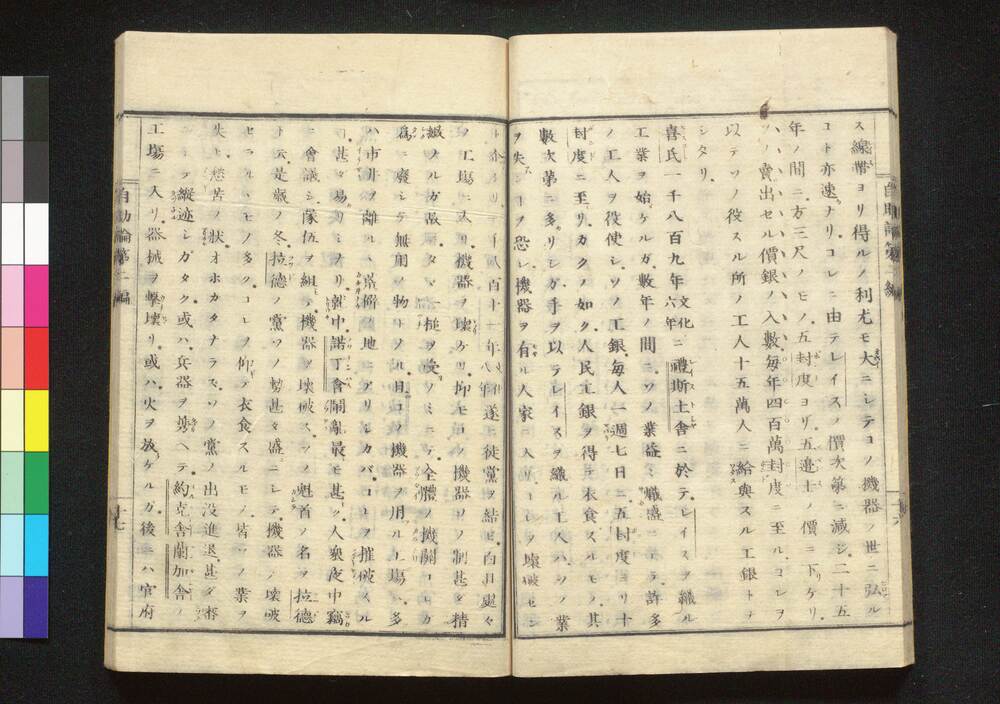 ス線帶ヨリ得ルノ利尤モ大ニシテコノ機器ノ世ニ弘ル
コト亦速ナリコレニ由テレイスノ價次第ニ減シ二十五
年ノ間ニ方三尺ノモノ五封度ヨリ五邊士ノ價ニ下ケリ
ソノ賣出セル價銀ノ入數毎年四百萬封度ニ至ルコレヲ
以テソノ役スル所ノ工人十五萬人ニ給與スル工銀トナ
シタリ
喜氏一千八百九年文化六年ニ禮斯土舍ニ於テレイスヲ織ル
工業ヲ始ケルガ數年ノ間ニソノ業盛ニ職盛ニ許多
ノ工人ヲ役使シソノ工銀毎人一週七日ニ五封度ヨリ十
封度ニ至リカクノ如ク人民工銀ヲ得テ衣食スルモノ其
數次第ニ多リシガ手ヲ以テレイスヲ織ル工人ハソノ業
ヲ失ンコヲ恐レ機器ヲ有ル人家ニコレヲ壞破セン
八百十一年遂ニ徒黨ヲ結ビ白日處々
ノ工塲ニ入リ機器ヲ壞ケリ抑モコノ機器ノ制甚ダ精
緻ノルガ故ニタヾ一槌ヲ受ノミニテ全體ノ機關コレカ
爲ニ廢シテ無用ノ物トナル且コノ機器ヲ用ル工塲ハ多
ハ市井ヲ離ル丶荒僻ノ地ニアリシカバコレヲ摧破スル
甚ダ易カリシナリ就中諾丁舍閙亂最モ甚シ人衆夜中竊
ニ會議シ隊伍ヲ組テ機器ヲ壞破スソノ魁首ノ名ヲ拉德
ト云是歳ノ冬拉德ノ黨ソノ勢甚ダ盛ニシテ機器ノ壞破
セラルヽモノ多クコレヲ仰テ衣食スルモノ皆ソノ業ヲ
失ヒ愁苦ノ狀オホカタナラズソノ黨ノ出没進退甚ダ
縱迹シガタク或ハ兵器ヲ携ヘテ約克舍蘭加舍ノ
工塲ニ入リ器械ヲ擊壞リ或ハ火ヲ放ケルガ後ニハ官府
自助論第二編
十七
十六